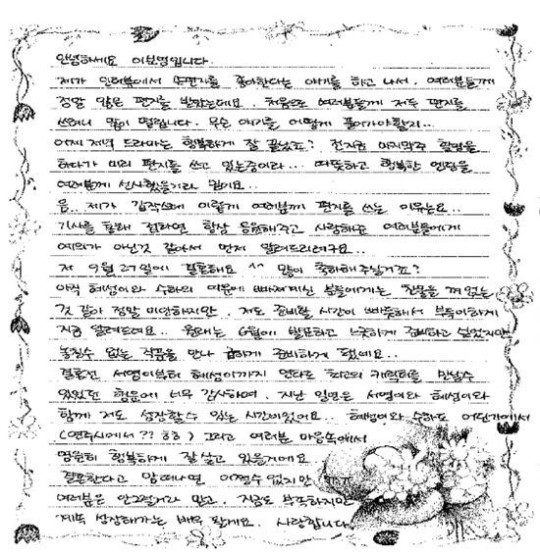 안녕하세요 이보영입니다.
제가 인터뷰에서 손편지를 좋아한다는 얘기를 하고 나서, 여러분들께
정말 많은 편지를 받았는데요. 처음으로 여러분들께 저도 편지를
쓰려니 많이 떨립니다. 무슨 얘기를 어떻게 풀어가야할지...
어제 저의 드라마는 행복하게 잘 끝났죠? 전 지금 마지막주 촬영을
하다가 미리 편지를 쓰고 있는중이라... 따뜻하고 행복한 엔딩을
여러분께 선사했을거라 믿어요..
음.. 제가 갑작스레 이렇게 여러분께 편지를 쓰는 이유는요..
기사를 통해 전하면 항상 응원해주고 사랑해준 여러분들에게
예의가 아닌것 같아서 먼저 알려드리려구요..
저 9월 27일에 결혼해요 ^^ 많이 축하해주실거죠?
아직 혜성이와 수하의 여운에 빠져계실 분들에게는 찬물을 껴얹는
것 같아 정말 미안하지만, 저도 준비할 시간이 빠듯해서 부득이하게
지금 알려드려요.. 원래는 6월에 발표하고 느긋하게 준비하고 싶었지만
놓칠수 없는 작품을 만나 급하게 준비하게 됐네요..
결혼전 서영이부터 혜성이까지 연타로 최고의 캐릭터를 만날수
있었던 행운에 너무 감사하며, 지난 일년은 서영이와 혜성이와
함께 저도 성장할수 있는 시간이었어요. 혜성이와 수하도 어딘가에서
(연주시에서?? ㅎㅎ) 그리고 여러분 마음속에서
영원히 행복하게 잘 살고 있을거에요
결혼한다고 맘 떠나면 어쩔수 없지만
여러분은 안그럴거라 믿고, 지금도 부족하지만
계속 성장해가는 배우 될게요. 사랑합니다